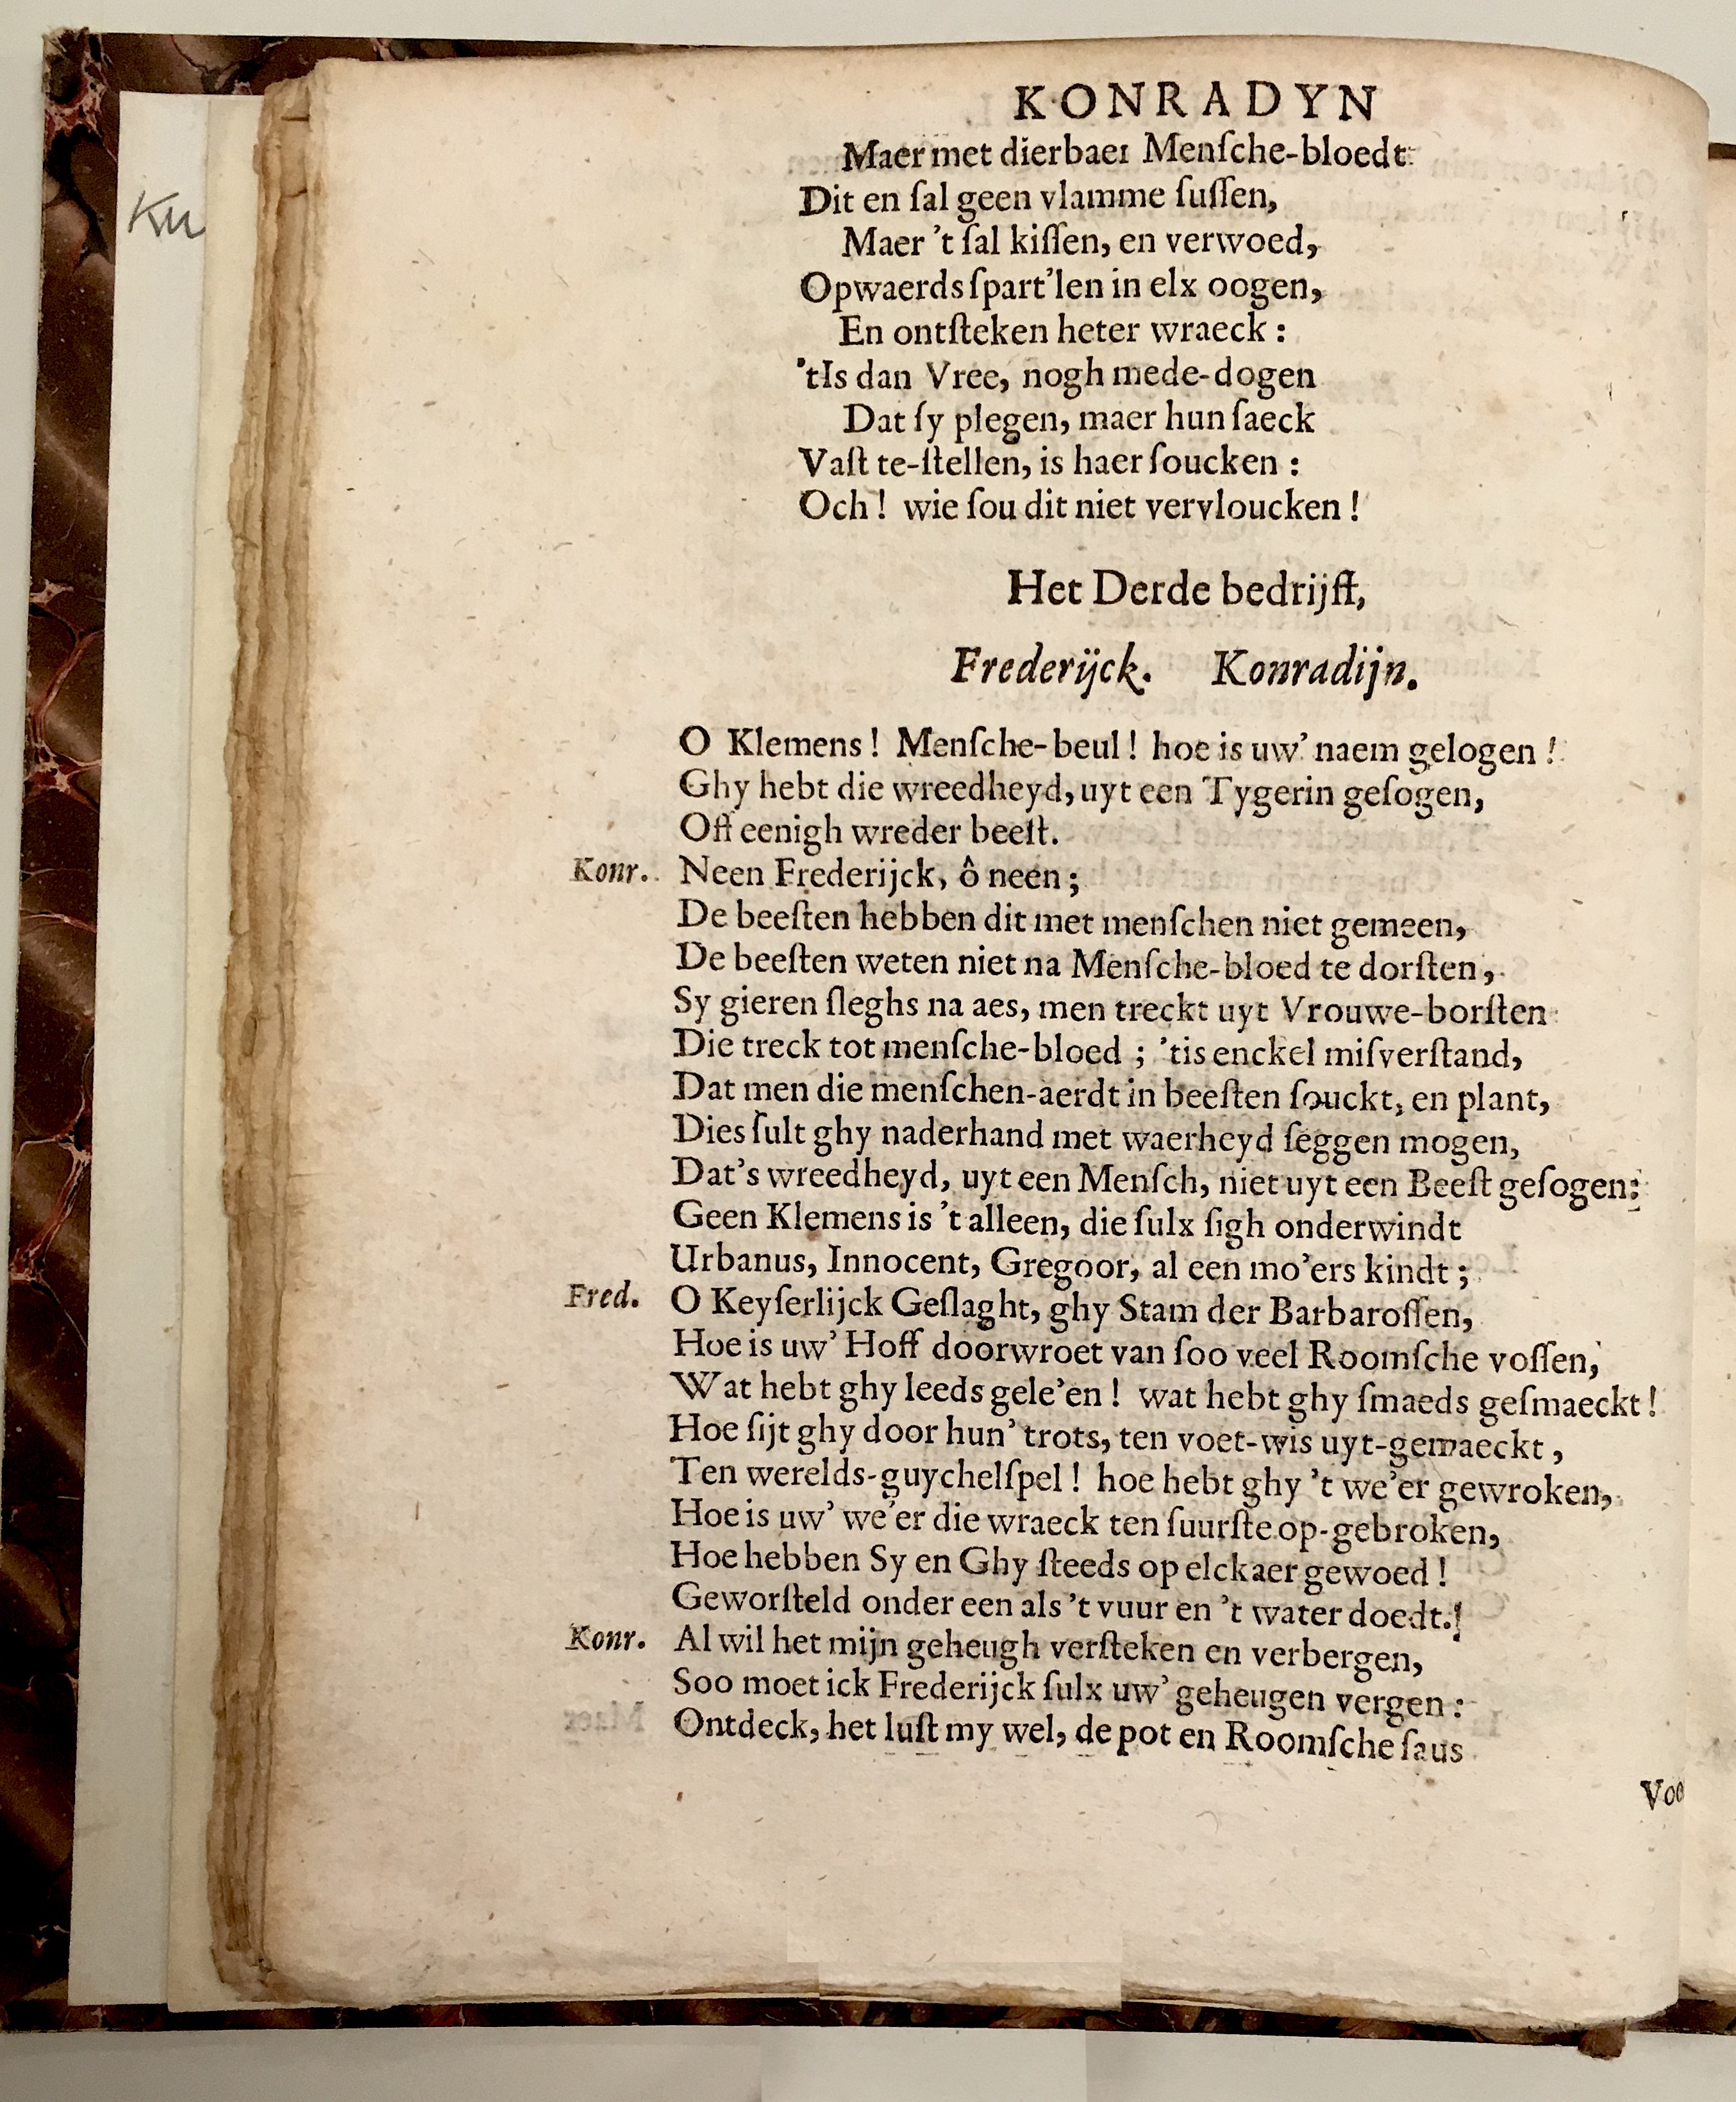 KONRADYN
Maer met dierbaer Menſche-bloedt
Dit en ſal geen vlamme ſuſſen,
Maer 't ſal kiſſen, en verwoed,
Opwaerds ſpart'len in elx oogen,
En ontſteken heter wraeck :
'tIs dan Vree, nogh mede-dogen
Dat ſy plegen, maer hun ſaeck
Vaſt te-ſtellen, is haer ſoucken :
Och ! wie ſou dit niet vervloucken !
Het Derde bedrijft,
Frederijck. Konradijn.
O Klemens ! Menſche-beul ! hoe is uw' naem gelogen !
Ghy hebt die wreedheyd, uyt een Tygerin geſogen,
Oft eenigh wreder beeſt.
Konr. Neen Frederijck, ô neen ;
De beeſten hebben dit met menſchen niet gemeen,
De beeſten weten niet na Menſche-bloed te dorſten,
Sy gieren ſleghs na aes, men treckt uyt Vrouwe-borſten
Die treck tot menſche-bloed ; 'tis enckel miſverſtand,
Dat men die menſchen-aerdt in beeſten ſouckt, en plant,
Dies ſult ghy naderhand met waerheyd ſeggen mogen,
Dat's wreedheyd, uyt een Menſch, niet uyt een Beeſt geſogen;
Geen Klemens is 't alleen, die ſulx ſigh onderwindt
Urbanus, Innocent, Gregoor, al een mo'ers kindt ;
Fred. O Keyſerlijck Geſlaght, ghy Stam der Barbaroſſen,
Hoe is uw' Hoff doorwroet van ſoo veel Roomſche voſſen,
Wat hebt ghy leeds gele'en ! wat hebt ghy ſmaeds geſmaeckt !
Hoe ſijt ghy door hun' trots, ten voet-wis uyt-gemaeckt ,
Ten werelds-guychelſpel ! hoe hebt ghy 't we'er gewroken,
Hoe is uw' we'er die wraeck ten ſuurſte op-gebroken,
Hoe hebben Sy en Ghy ſteeds op elckaer gewoed !
Geworſteld onder een als 't vuur en 't water doedt.!
Konr. Al wil het mijn geheugh verſteken en verbergen,
Soo moet ick Frederijck ſulx uw' geheugen vergen :
Ontdeck, het luſt my wel, de pot en Roomſche ſaus
Voo
Ku